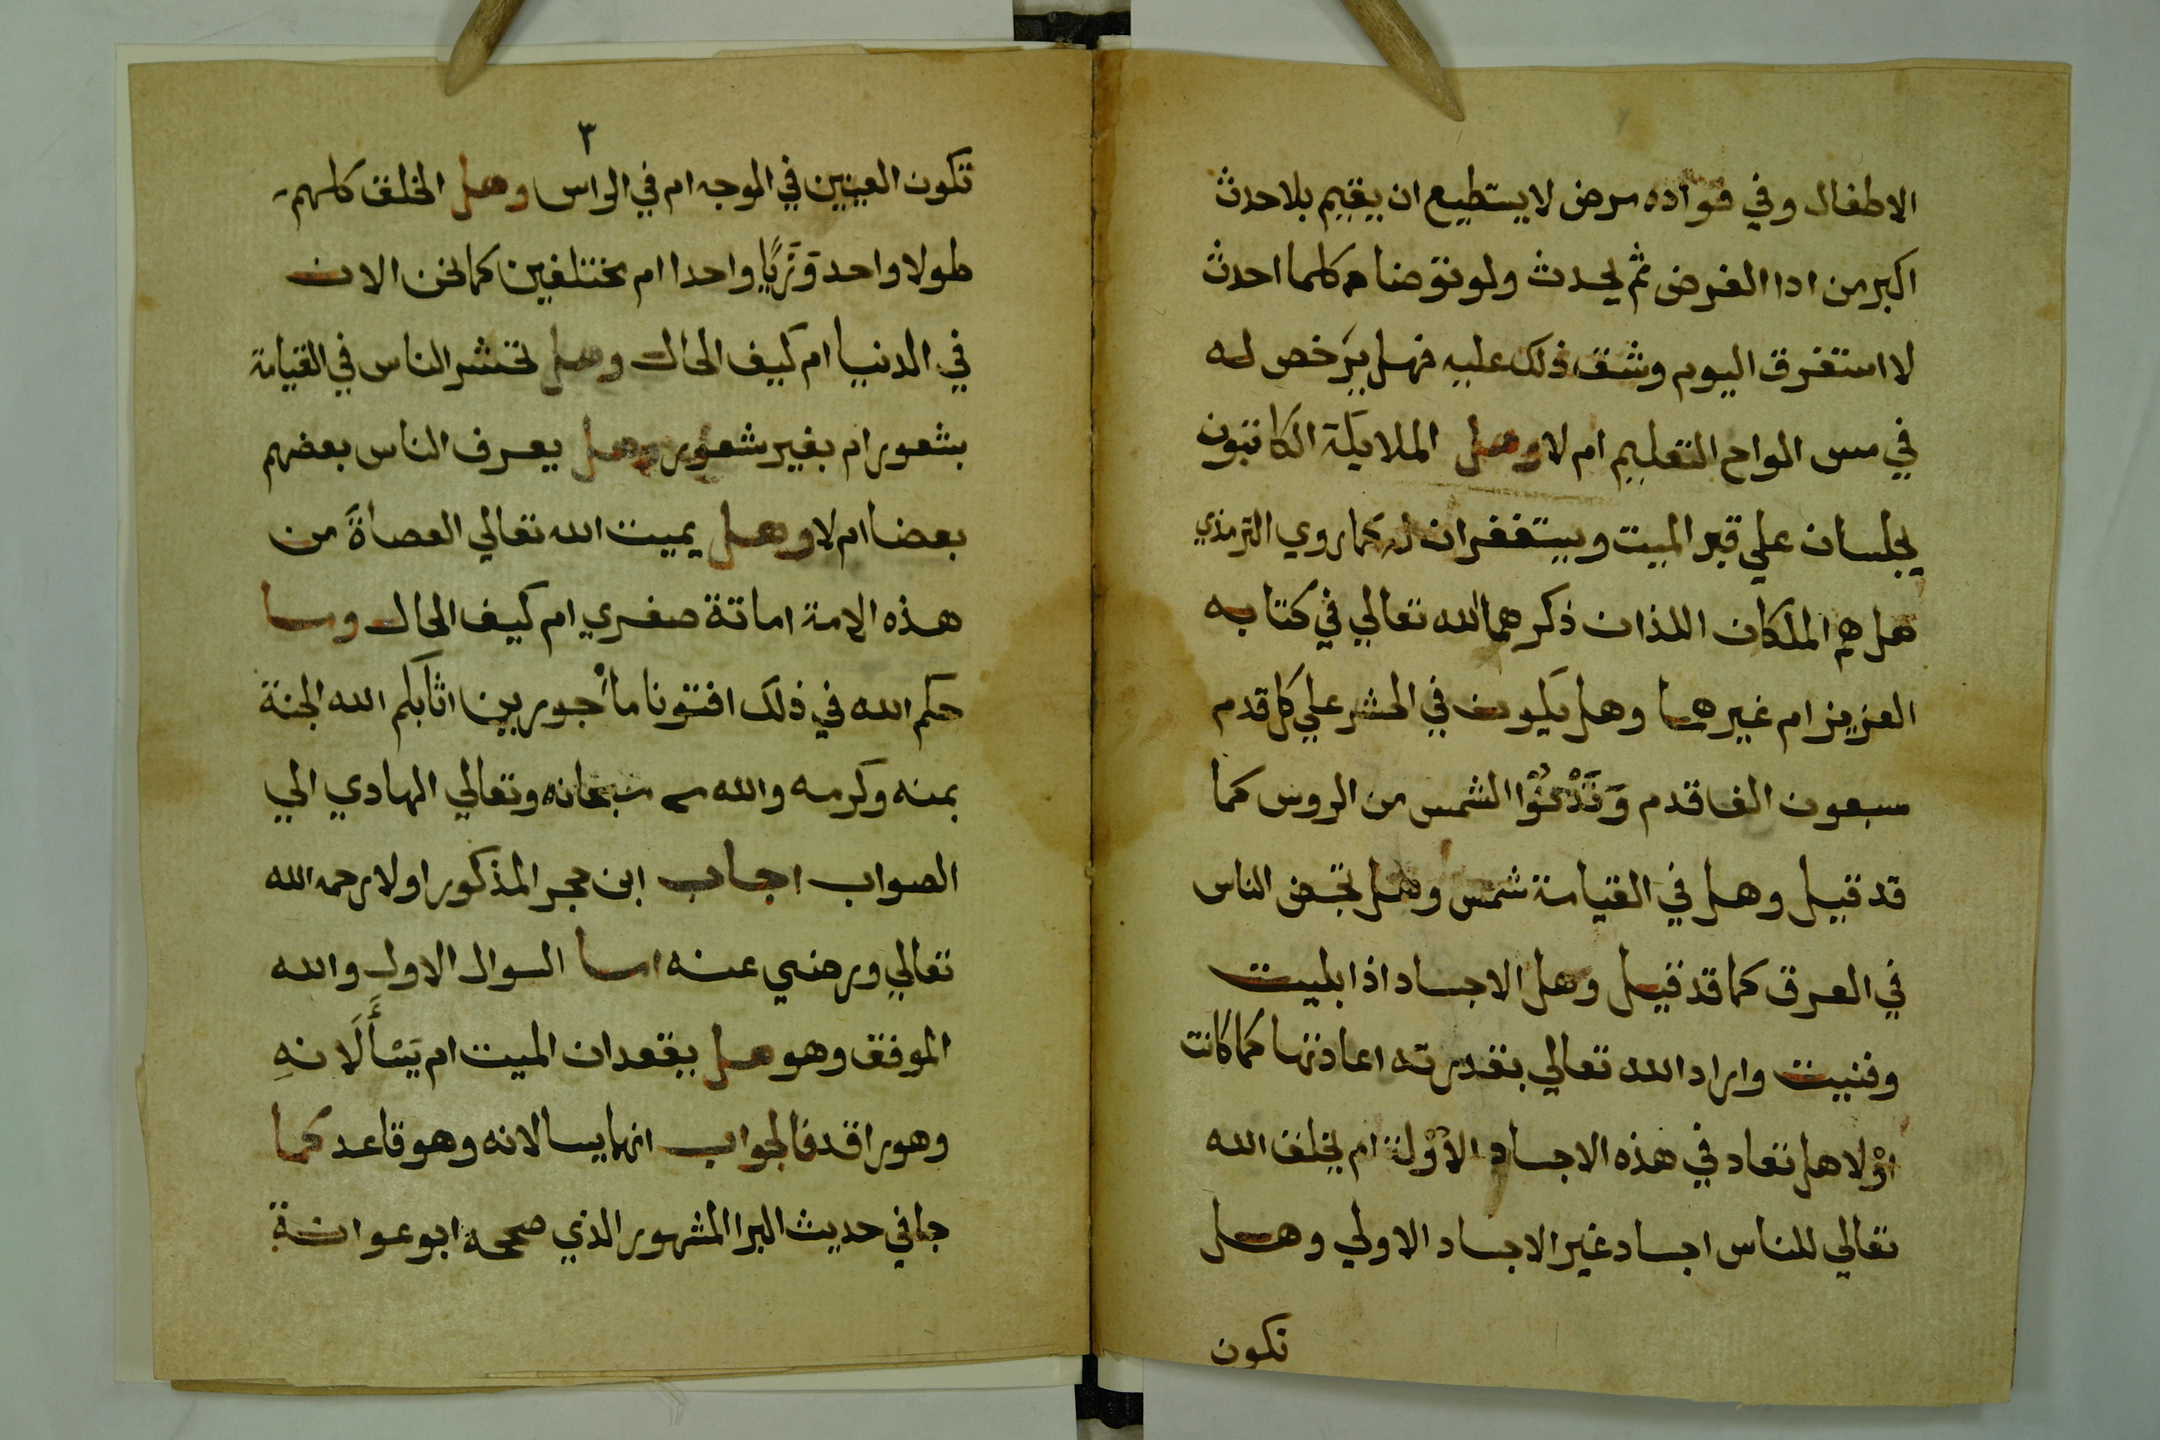 الاطفال وفي فواده مرض لا يستطيع ان يقيم بلا حدث
اكبر من ادا الفرض ثم يحدث ولو توضا كلما احدث
لا استغرق اليوم وشق ذلك عليه فهل يرخص له
في مس الواح التعليم ام لا وهل الملايكة الكاتبون
يجلسان علي قبر الميت ويستغفران له كما روي الترمذي
هل هم الملكان اللذان ذكرهما الله تعالي في كتابه
العزيز ام غيرهما وهل يكون في الحشر علي كل قدم
سبعون الف قدم وَتَدْنُوْا الشمس من الروس كما
قد قيل وهل في القيامة شمس وهل تخض الناس
في العرق كما قد قيل وهل الاجساد اذا بليت
وفنيت واراد الله تعالي بقدرته اعادتها كما كانت
اوْلا هل تعاد في هذه الاجساد الاوْلة ام يخلق الله
تعالي للناس اجساد غير الاجساد الاولي وهل
تكون
٣
تكون العينين في الوجه ام في الراس وهل الخلق كلهم
طولا واحد وَزَيًّا واحدا ام مختلفين كما نحن الان
في الدنيا ام كيف الحال وهل تحتشر الناس في القيامة
بشعور ام بغير شعور وهل يعرف الناس بعضهم
بعضا ام لا وهل يميت الله تعالي العصاةَ من
هذه الامة اماتة صغري ام كيف الحال وما
حكم الله في ذلك افتونا مأجورين اثابكم الله الجنة
بمنه وكرمه والله سبحانه وتعالي الهادي الي
الصواب اجاب ابن حجر المذكور اولا رحمه الله
تعالي ورضي عنه اما السوال الاول والله
الموفق وهو هل يقعدان الميت ام يَسْأَلَانهِ
وهو راقد فالجواب انهما يسالانه وهو قاعد كما
جا في حديث البرا المشهور الذي صححه ابو عوانة